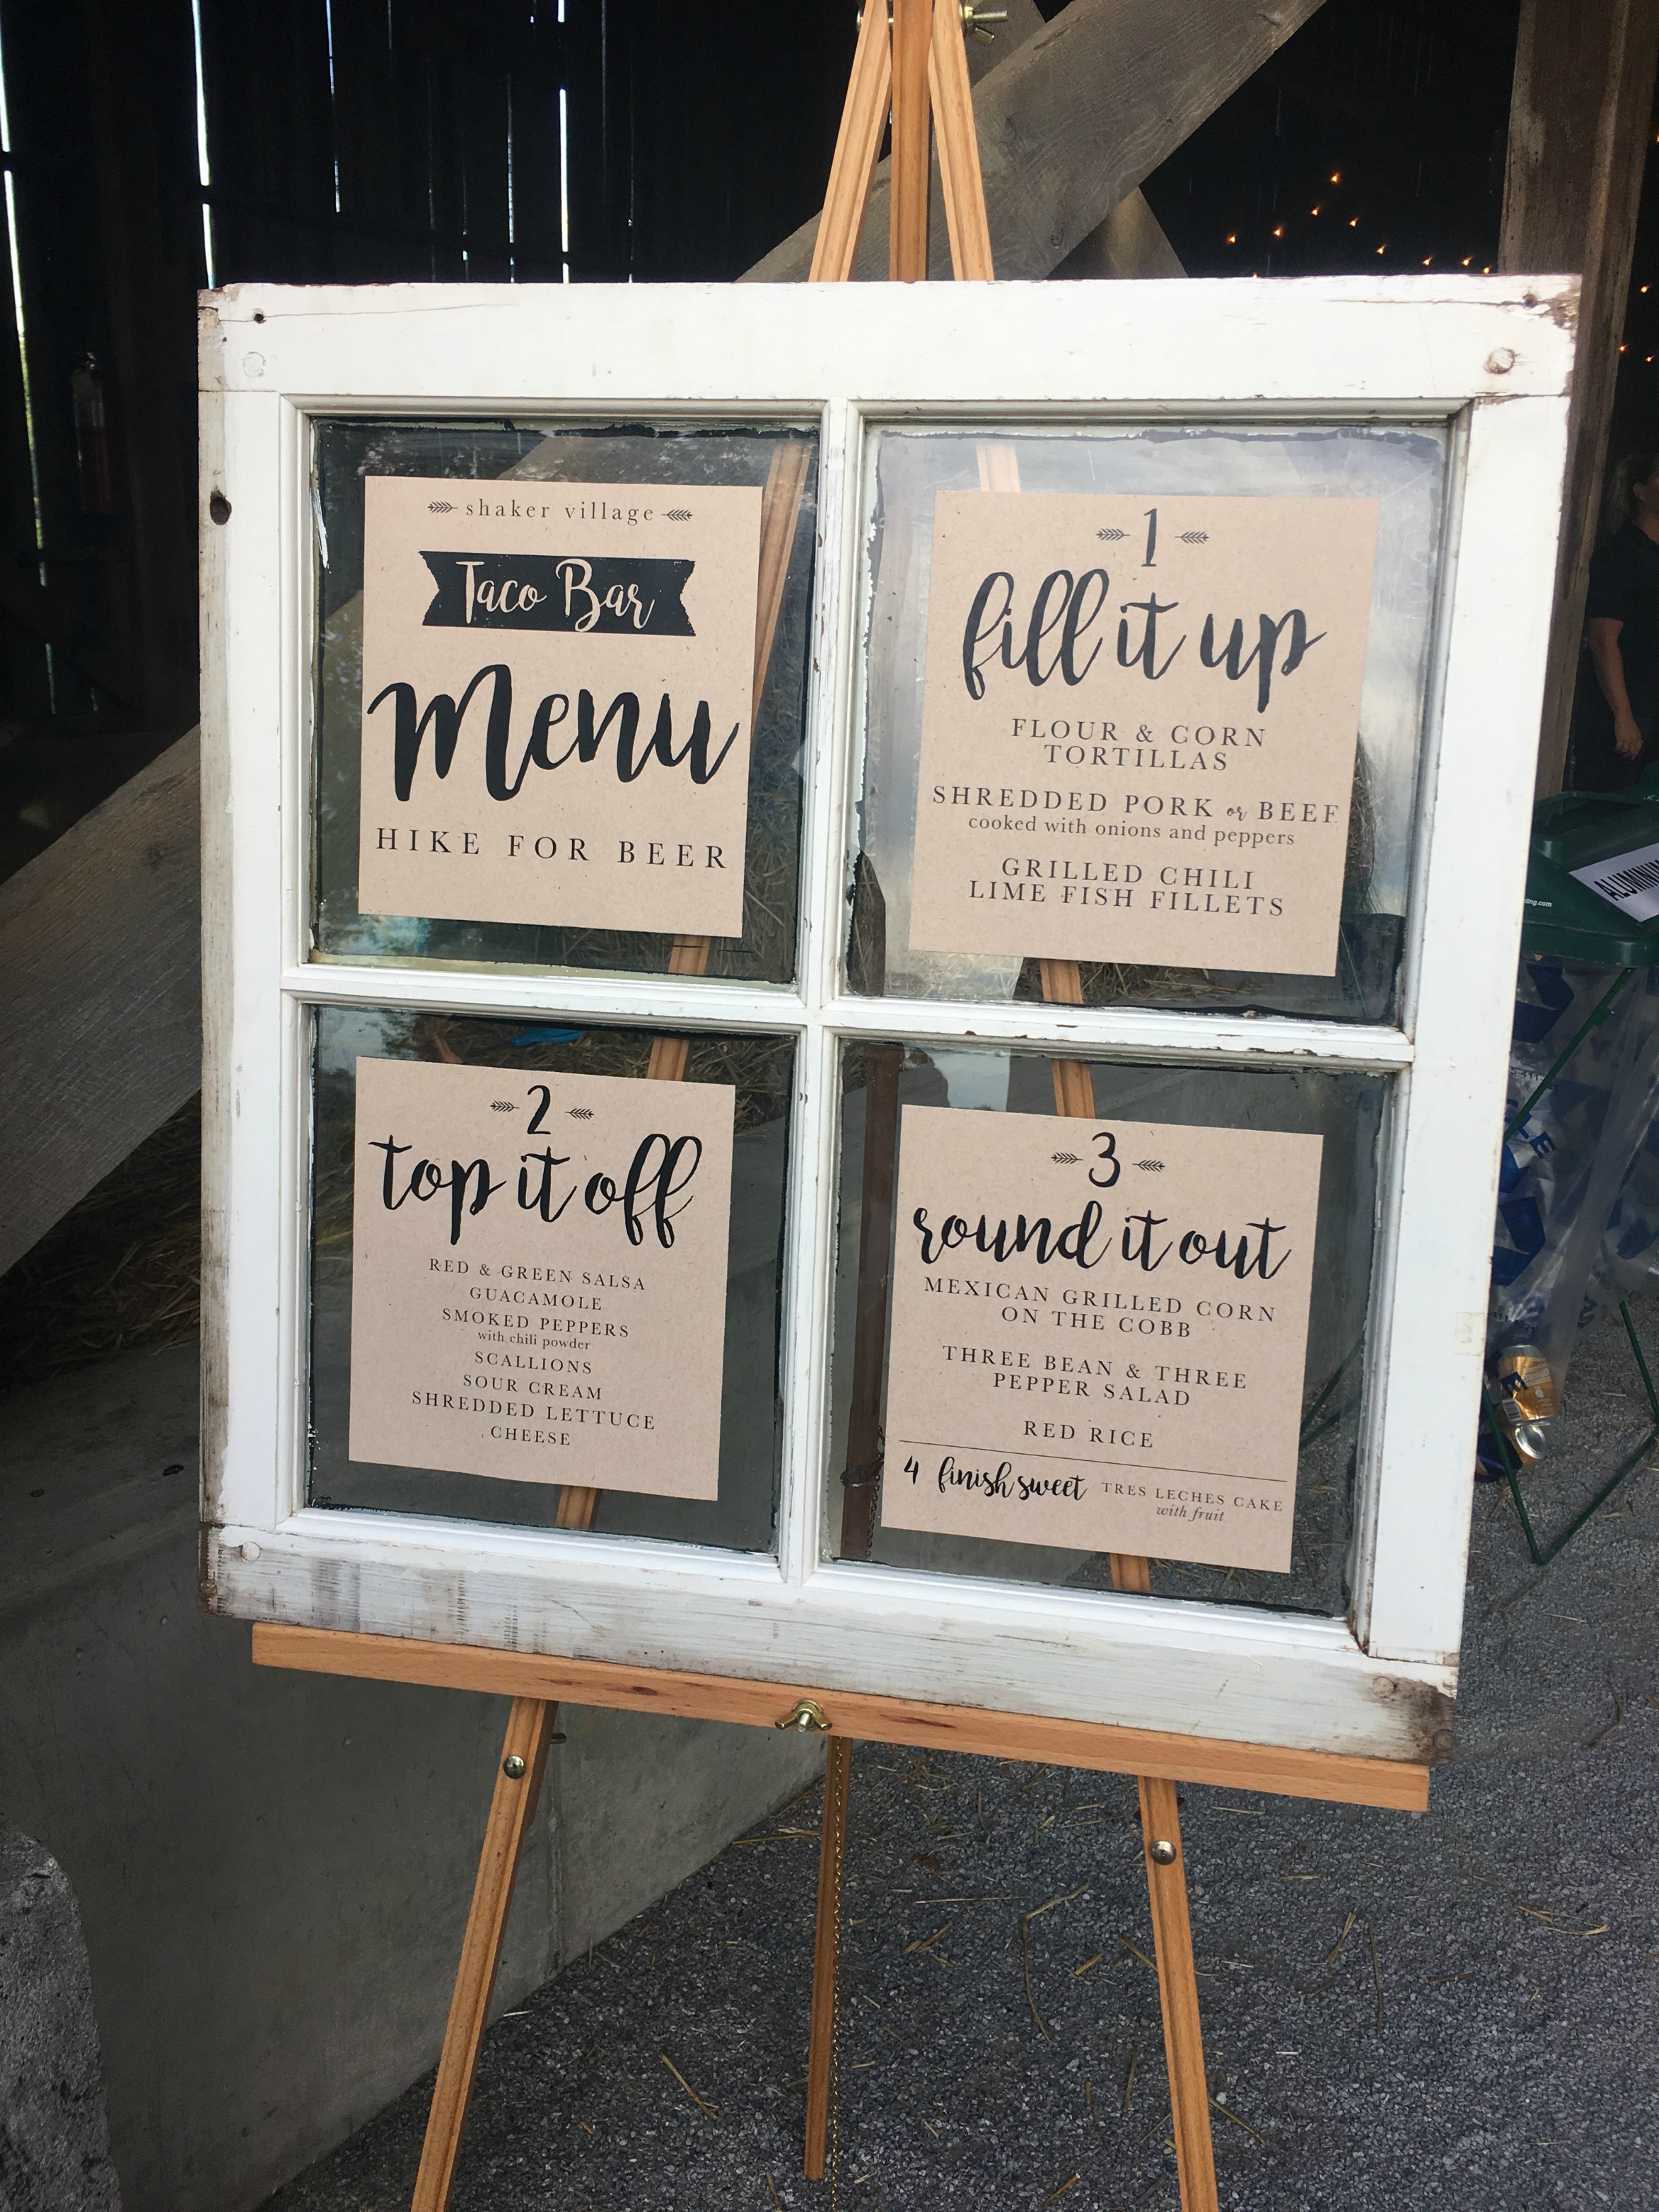 shaker village
Taco Bar
Menu
HIKE FOR BEER
1
fill it up
FLOUR & CORN
TORTILLAS
SHREDDED PORK or BEEF
cooked with onions and peppers
GRILLED CHILI
LIME FISH FILLETS
2
top it off
RED & GREEN SALSA
GUACAMOLE
SMOKED PEPPERS
with chili powder
SCALLIONS
SOUR CREAM
SHREDDED LETTUCE
CHEESE
3
round it out
MEXICAN GRILLED CORN
ON THE COBB
THREE BEAN & THREE
PEPPER SALAD
RED RICE
4 finish sweet TRES LECHES CAKE
with fruit